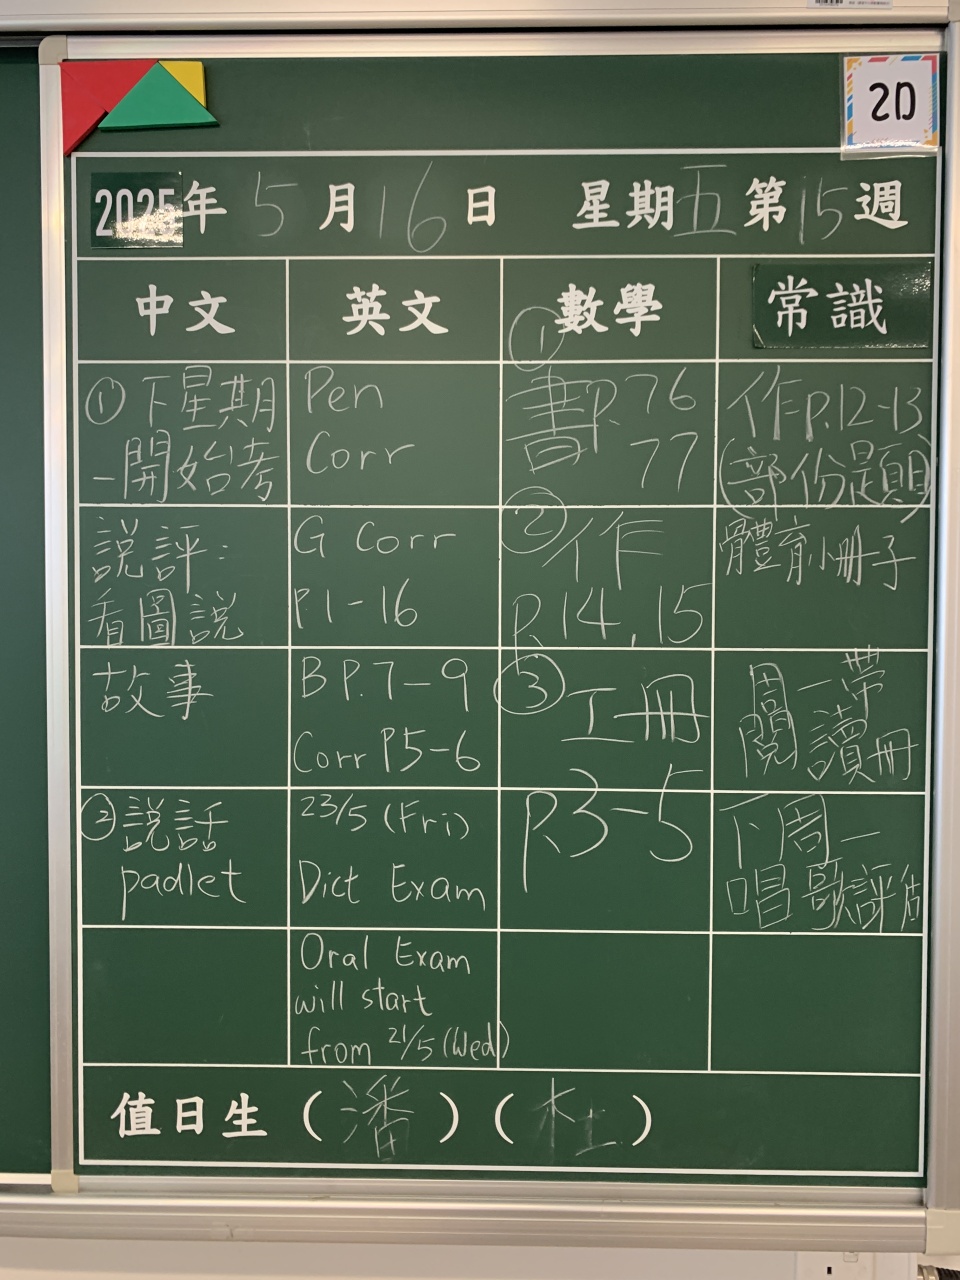 2D
2025年 5月16日 星期五 第15週
中文
①下星期
一開始考
説評：
看圖説
故事
②説話
padlet
英文
Pen
Corr
G Corr
P.1-16
B P.7-9
Corr P5-6
23/5 (Fri)
Dict Exam
Oral Exam
will start
from 21/5 (Wed)
數學
①
書P.76
77
②作
P.14,15
③工冊
P.3-5
常識
作P.12-13
(部份題目)
體育小冊子
周一帶
閱讀冊
下周一
唱歌評估
值日生（潘）（杜）